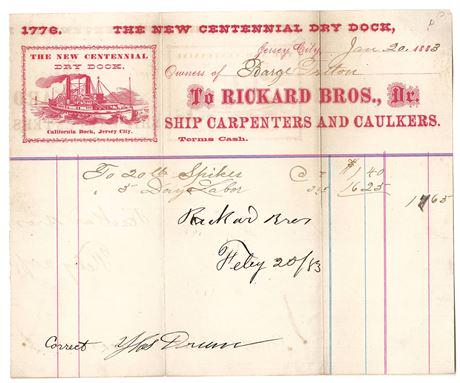 1776. THE NEW CENTENNIAL DRY DOCK,
THE NEW CENTENNIAL
DRY DOCK.
California Dock, Jersey City.
Jersey City, Jan 20. 1883
Owners of Barge
To RICKARD BROS., Dr.
SHIP CARPENTERS AND CAULKERS.
Terms Cash.
To 20 lb Spikes @ 7 $1.40
" 5 Day Labor 325 16 25
17 65
Rickard Bros
Feby 20/83
Correct